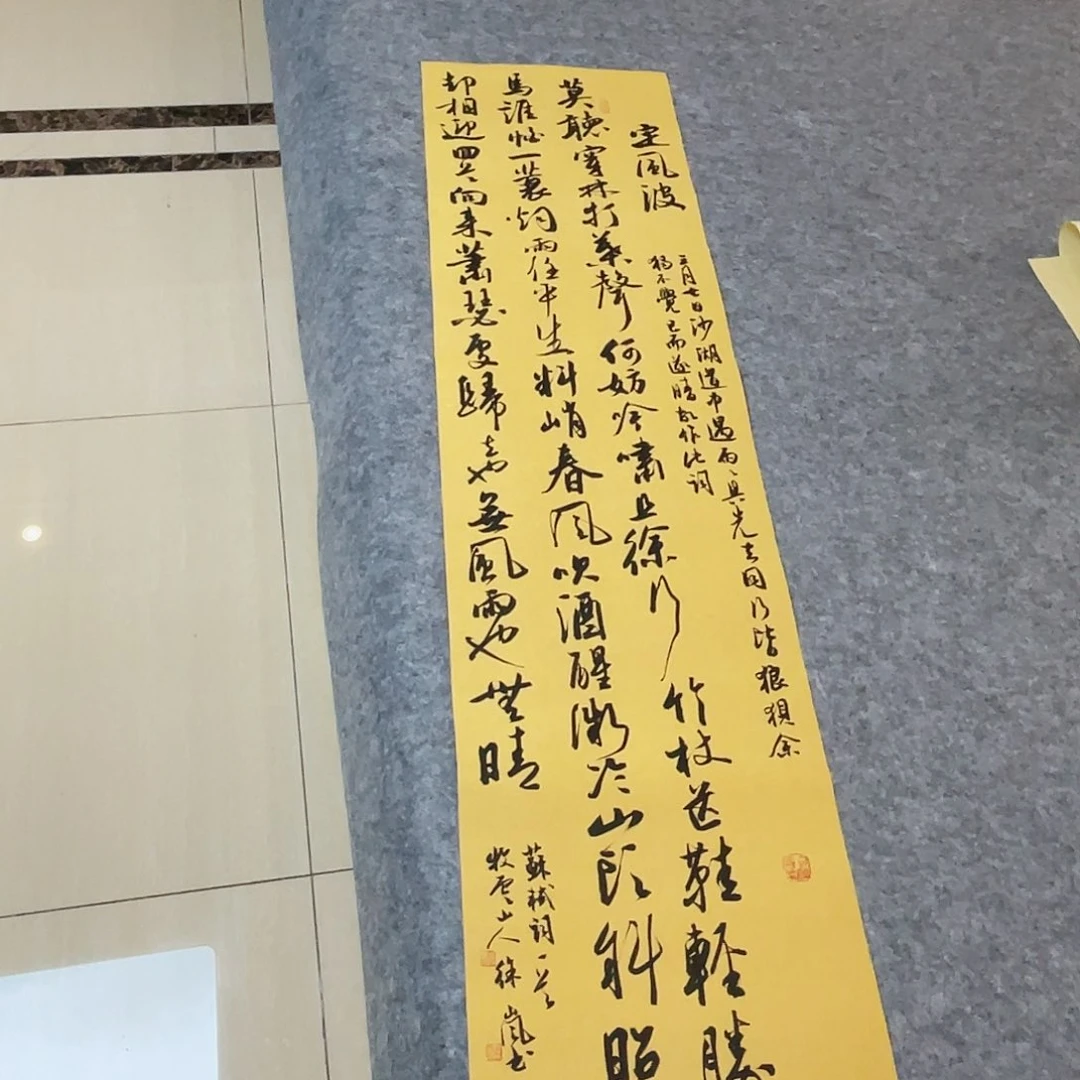 定風波
三月七日沙湖道中遇雨〻具先去同行皆狼狽余
獨不覺已而遂晴故作此詞
莫聽穿林打葉聲何妨吟嘯且徐行竹杖芒鞋輕勝
馬誰怕一蓑烟雨任平生料峭春風吹酒醒微冷山頭斜照
却相迎回首向来蕭瑟處歸去也無風雨也無晴
蘇軾詞一首
牧雲山人徐嵐书